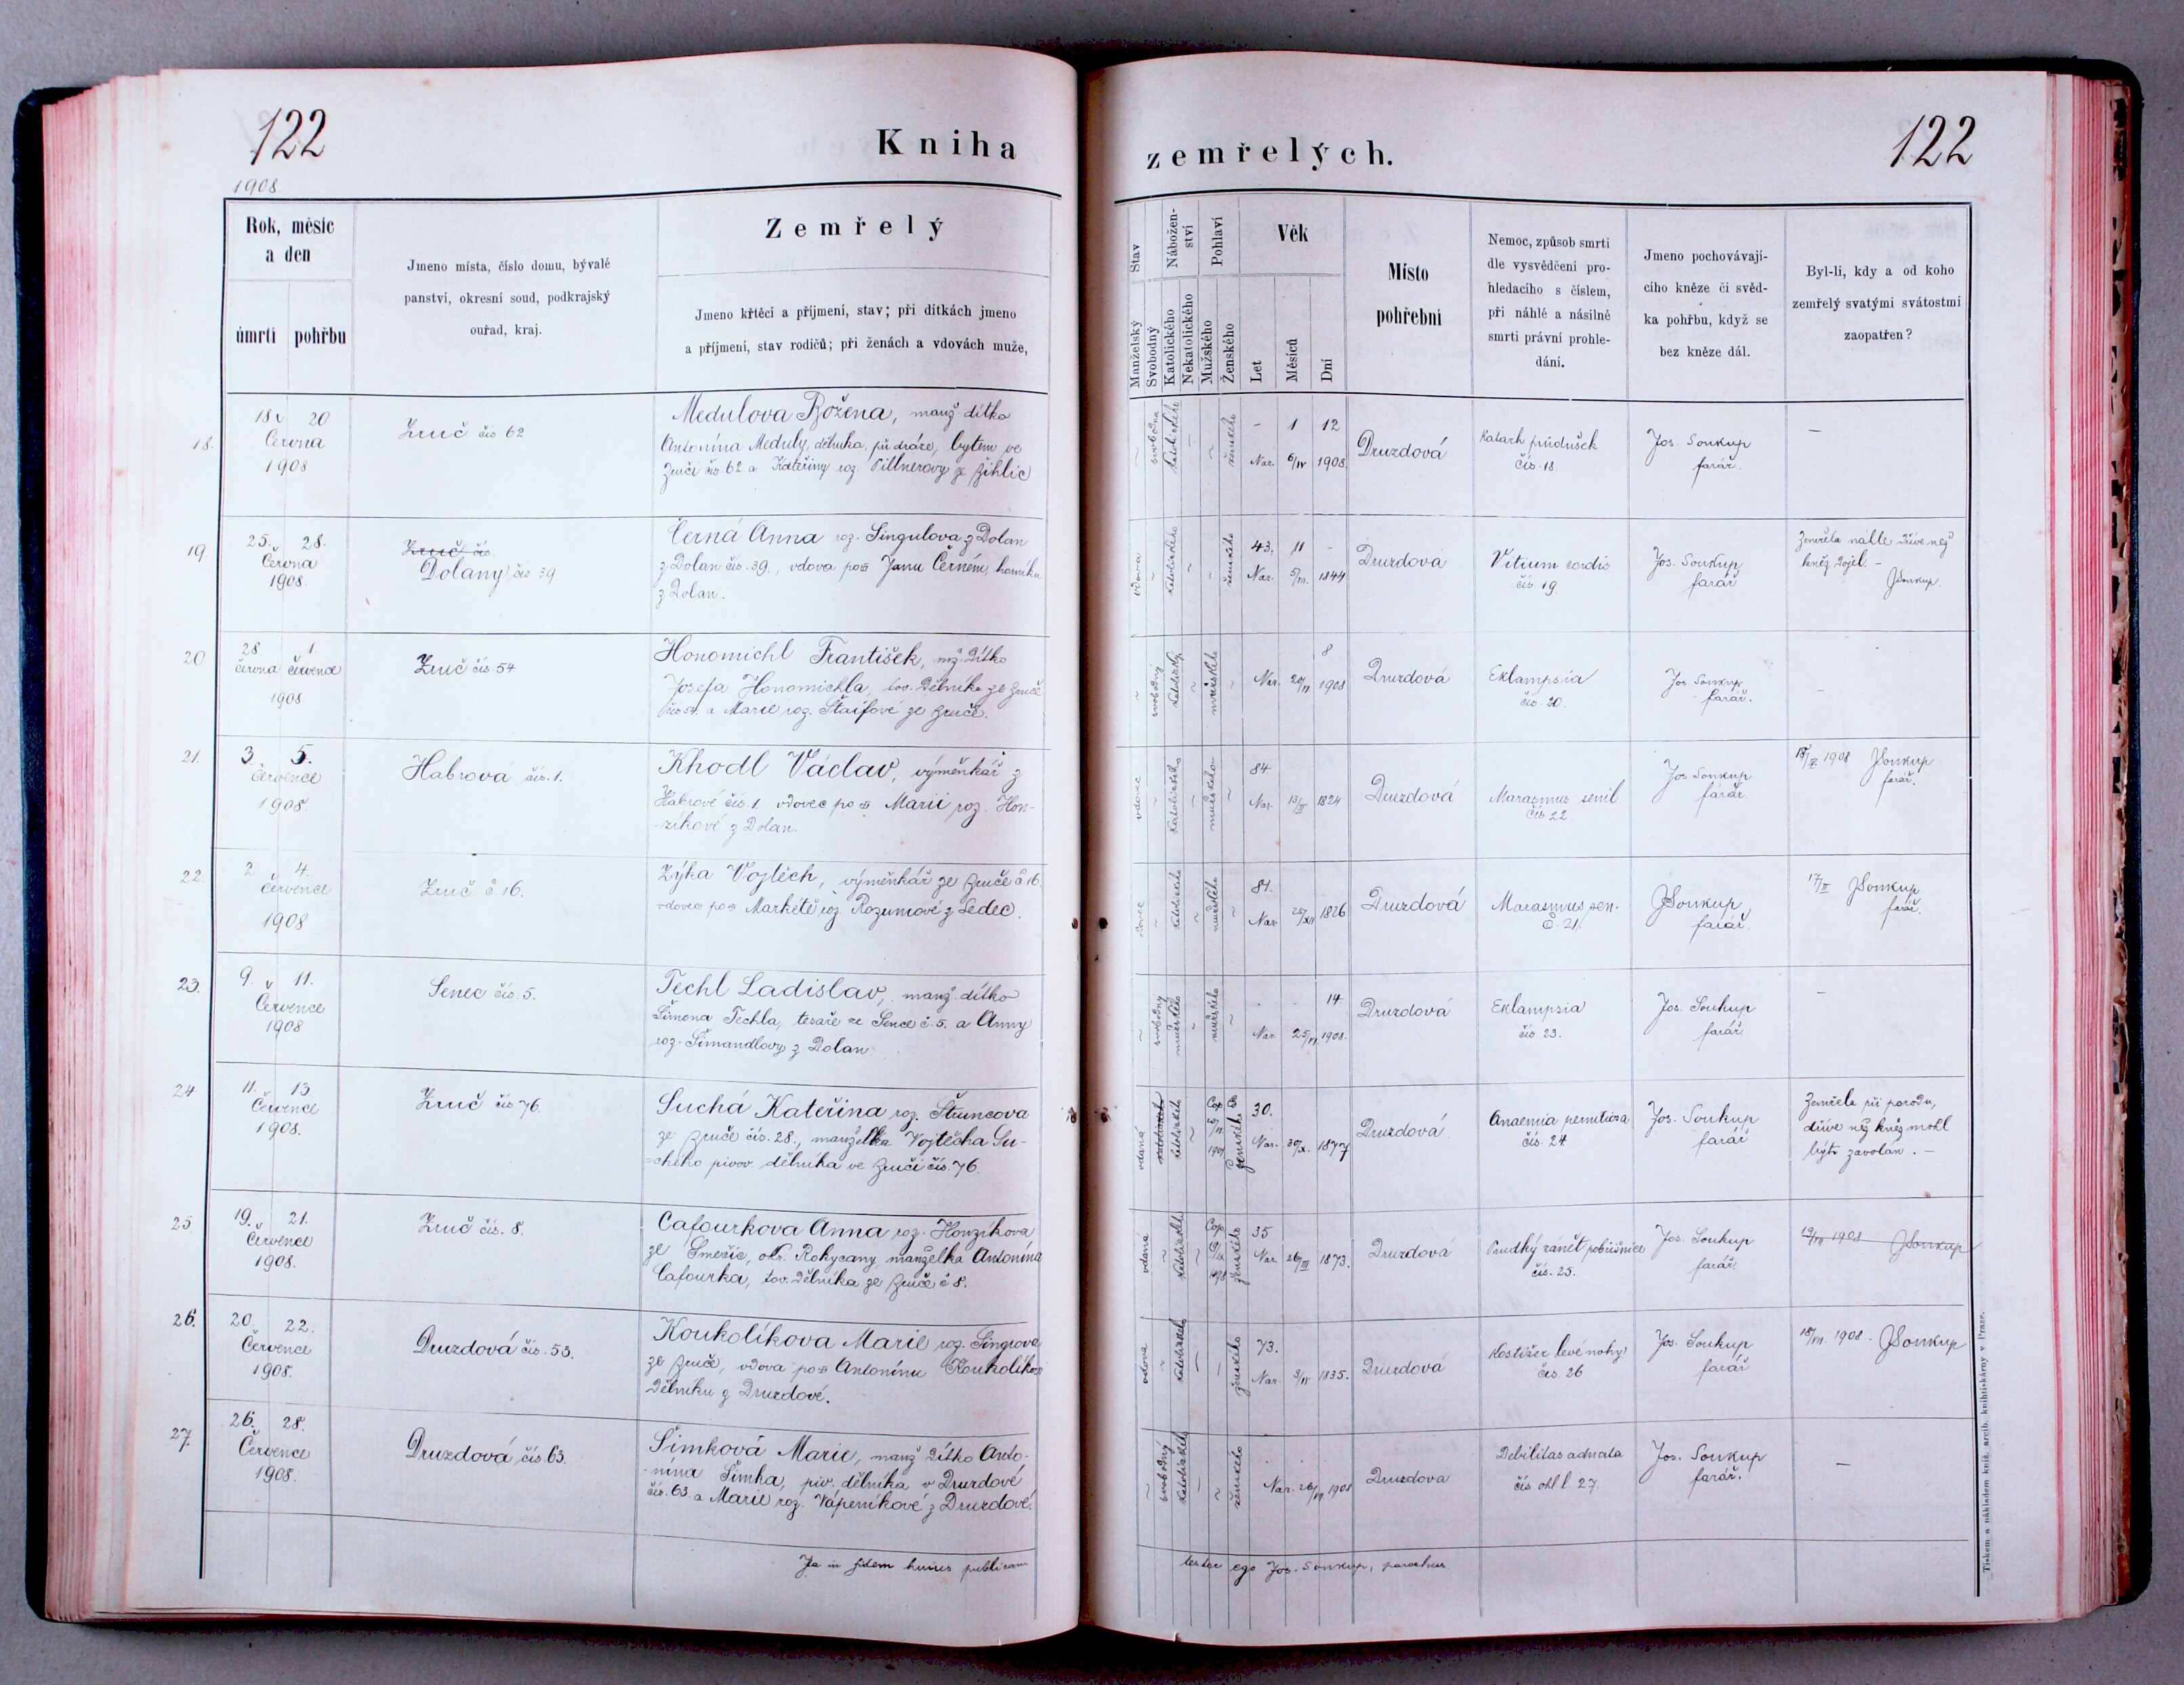 122
Kniha
1908
Rok, měsíc
a den
úmrtí pohřbu
Jmeno místa, číslo domu, bývalé
panství, okresní soud, podkrajský
ouřad, kraj.
Zemřelý
Jmeno křtěcí a příjmení, stav; při dítkách jmeno
a příjmení, stav rodičů; při ženách a vdovách muže,
18.
18 20
Června
1908
Zruč čís 62
Medulova Božena, manž. dítko
Antonína Meduly, dělníka při dráze, bytem ve
Zruči čís 62 a Kateřiny roz. Pillnerovy z Žihlic
19
25. 28.
Června
1908.
Zruč čís.
Dolany čís 39
Černá Anna roz. Singulova z Dolan
z Dolan čís. 39., vdova po Janu Černém, horníku
z Dolan.
20
28 1.
června července
1908
Zruč čís 54
Honomichl František, mž. dítko
Josefa Honomichla, tov. dělníka ze Zruče
čís 54. a Marie roz. Štaifové ze Zruče.
21.
3. 5.
Července
1908.
Habrová čís. 1.
Khodl Václav, výměnkář z
Habrové čís. 1. vdovec po Marii roz. Hon-
zíkové z Dolan.
22.
2 4.
Července
1908
Zruč č. 16.
Zýka Vojtěch, výměnkář ze Zruče č 16.
vdovec po Markétě roz. Rozumové z Ledec.
23.
9. 11.
Července
1908
Senec čís. 5.
Techl Ladislav, manž. dítko
Šimona Techla, tesaře ze Sence č. 5. a Anny
roz. Šimandlovy z Dolan
24
11. 13
Července
1908.
Zruč čís 76.
Suchá Kateřina roz. Štruncova
ze Zruče čís. 28., manželka Vojtěcha Su-
chého pivov. dělníka ve Zruči čís. 76.
25
19. 21.
Července
1908.
Zruč čís. 8.
Cafourkova Anna roz. Honzíkova
ze Smežic, okr. Rokycany, manželka Antonína
Cafourka, tov. dělníka ze Zruče č 8.
26.
20. 22.
Července
1908.
Druzdová čís. 53.
Koukolíkova Marie roz. Singrova
ze Zruče, vdova po Antonínu Koukolíkovi
dělníku z Druzdové.
27.
26. 28.
Července
1908.
Druzdová čís 63.
Šimková Marie, manž dítko Anto-
nína Šimka, piv. dělníka v Druzdové
čís. 63 a Marie roz. Vápeníkové z Druzdové.
Ita in fidem huius publicam
zemřelých.
122
Stav
Nábožen-
ství
Pohlaví
Věk
Manželský
Svobodný
Katolického
Nekatolického
Mužského
Ženského
Let
Měsíců
Dní
Místo
pohřební
Nemoc, způsob smrti
dle vysvědčení pro-
hledacího s číslem,
při náhlé a násilné
smrti právní prohle-
dání.
Jmeno pochovávají-
cího kněze či svěd-
ka pohřbu, když se
bez kněze dál.
Byl-li, kdy a od koho
zemřelý svatými svátostmi
zaopatřen?
svobodna
katolického
ženského
- 1 12
Nar. 6/IV 1908.
Druzdová
Katarh průdušek
čís. 18.
Jos. Soukup
farář.
—
vdova
katolického
ženského
43. 11 -
Nar. 1844
Druzdová
Vitium cordis
čís. 19.
Jos. Soukup
farář
Zemřela náhle dříve než
kněz dojel. -
JSoukup.
svobodný
katolický
mužského
8
Nar. 20/VI 1908
Druzdová
Eklampsia
čís. 20.
Jos Soukup
farář.
vdovec
katolického
mužského
84
Nar. 1824
Druzdová
Marasmus senil
čís 22.
Jos. Soukup
farář.
1908 JSoukup
farář.
vdovec
katolického
mužského
81.
Nar. 1826
Druzdová
Marasmus sen.
č. 21.
JSoukup
farář.
JSoukup
farář.
svobodný
mužského
mužského
14
Nar 25/VI 1908.
Druzdová
Eklampsia
čís. 23.
Jos. Soukup
farář.
vdaná
katolického
Cop
ženského
30.
Nar. 1877
Druzdová.
Anaemia pernitiosa
čís. 24
Jos. Soukup
farář
Zemřela při porodu,
dříve než kněz mohl
býti zavolán. —
vdaná
katolického
Cop.
ženského
35
Nar. 26/III 1873.
Druzdová
Prudký zánět pobřišnice
čís. 25.
Jos. Soukup
farář.
19/VII 1908 JSoukup
vdova
katolického
ženského
73.
Nar. 1835.
Druzdová
Kostižer levé nohy
čís. 26
Jos. Soukup
farář
18/VII. 1908. JSoukup
svobodný
katolického
ženského
Nar. 26/VII 1908
Druzdova
Debilitas adnata
čís ohl l 27.
Jos. Soukup
farář.
—
testor ego Jos. Soukup, parochus
Tiskem a nákladem kníž. arcib. knihtiskárny v Praze.